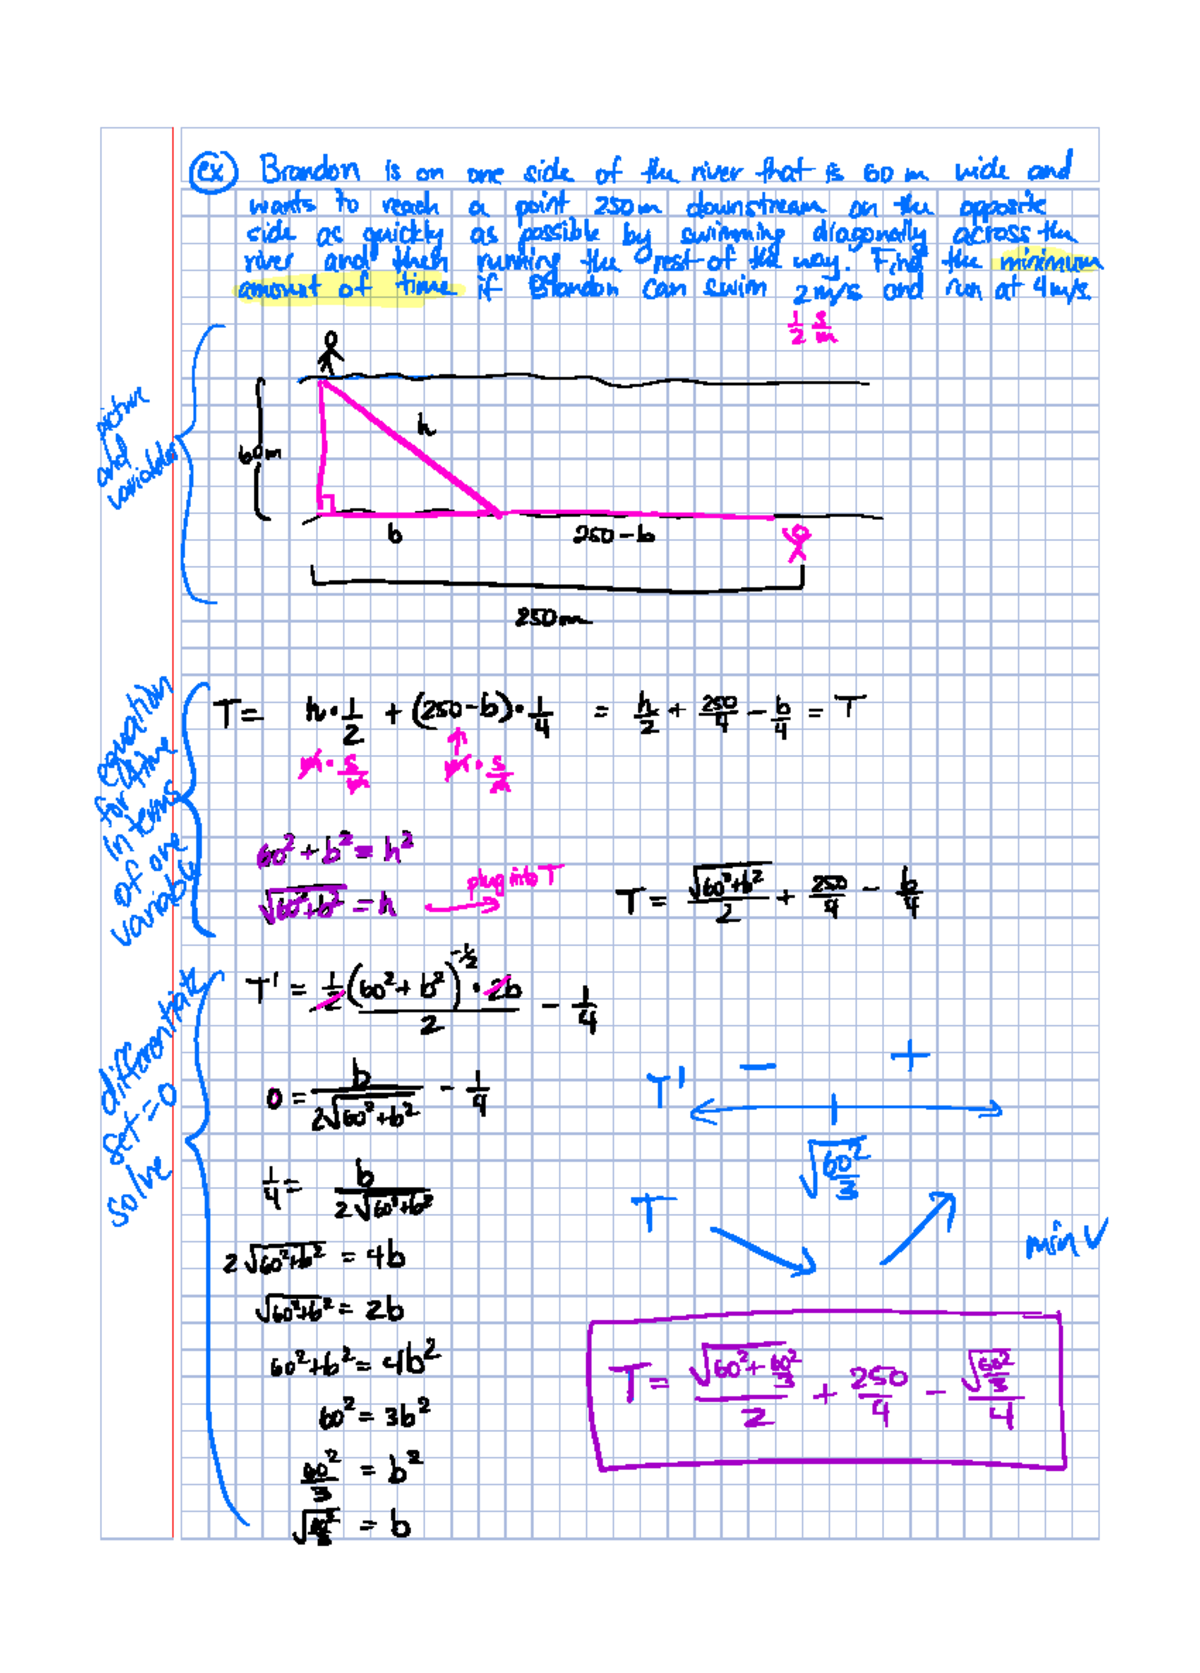 ex Brandon is on one side of the river that is 60 m wide and
wants to reach a point 250m downstream on the opposite
side as quickly as possible by swimming diagonally across the
river and then running the rest of the way. Find the minimum
amount of time if Brandon can swim 2m/s and run at 4m/s.
1/2 s/m
picture
and
variables
60m
h
b
250-b
250m
equation
for time
in terms
of one
variable
T= h·1/2 + (250-b)·1/4 = h/2 + 250/4 - b/4 = T
m·s/m m·s/m
60²+b²=h²
√(60²+b²) = h plug into T
T = √(60²+b²)/2 + 250/4 - b/4
differentiate
set=0
solve
T' = 1/2(60²+b²)^(-1/2)·2b/2 - 1/4
0 = b/(2√(60²+b²)) - 1/4
1/4 = b/(2√(60²+b²))
2√(60²+b²) = 4b
√(60²+b²) = 2b
60²+b² = 4b²
60² = 3b²
60²/3 = b²
√(60²/3) = b
T' - +
√(60²/3)
T
min ✓
T = √(60²+60²/3)/2 + 250/4 - √(60²/3)/4